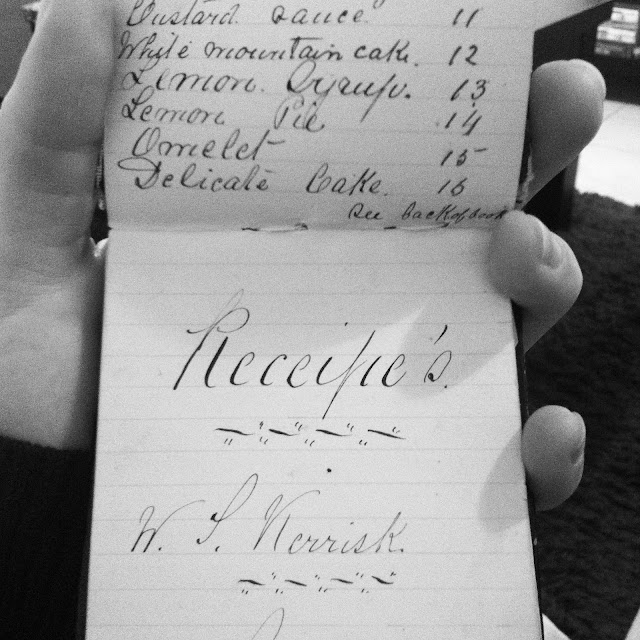 Custard sauce 11
White mountain cake. 12
Lemon Syrup. 13
Lemon Pie 14
Omelet 15
Delicate Cake 16
See back of book
Receipie's.
W. S. Kerrisk.